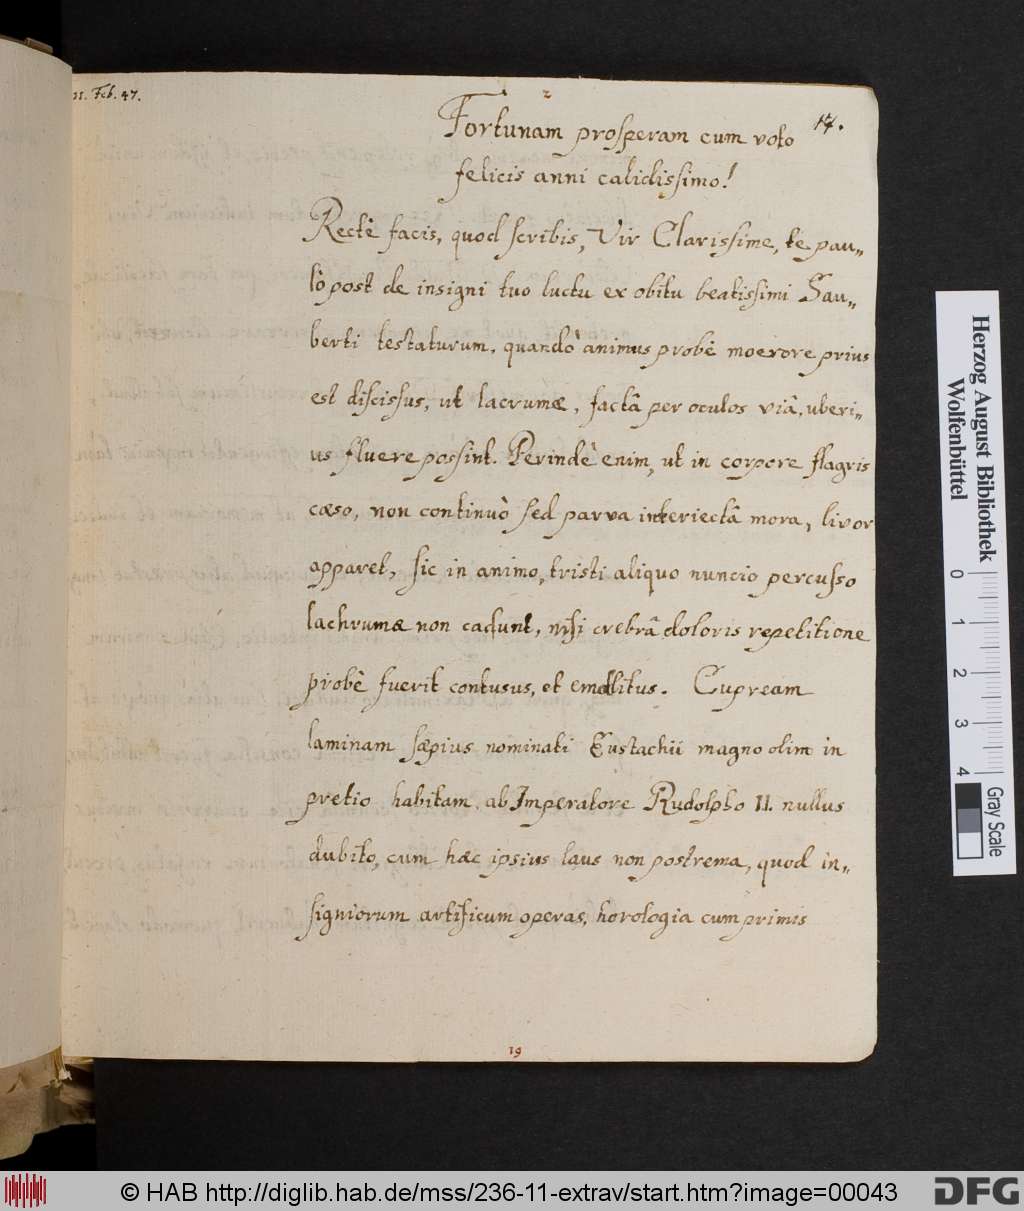 11. Feb. 47.
2
14.
Fortunam prosperam cum voto
felicis anni calidissimo!
Rectè facis, quod scribis, Vir Clarissime, te pau„
lò post de insigni tuo luctu ex obitu beatissimi Sau„
berti testaturum, quandò animus probè moerore prius
est discissus, ut lacrumæ, factâ per oculos viâ, uberi„
us fluere possint. Perindè enim, ut in corpore flagris
cæso, non continuò sed parva interiectâ mora, livor
apparet, sic in animo, tristi aliquo nuncio percusso
lachrumæ non cadunt, nisi crebrâ doloris repetitione
probè fuerit contusus, et emollitus. Cupream
laminam sæpius nominati Eustachii magno olim in
pretio habitam ab Imperatore Rudolpho II. nullus
dubito, cum hæc ipsius laus non postrema, quod in„
signiorum artificum operas, horologia cum primis
19
Herzog August Bibliothek
Wolfenbüttel
0 1 2 3 4
Gray Scale
© HAB http://diglib.hab.de/mss/236-11-extrav/start.htm?image=00043
DFG